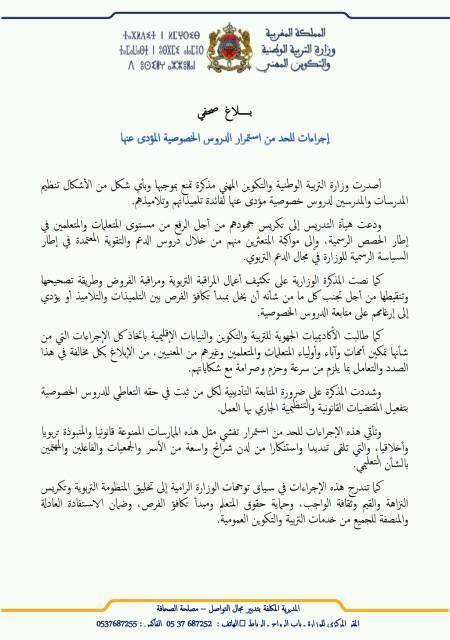 المملكة المغربية
وزارة التربية الوطنية
والتكوين المهني
ⵜⴰⴳⵍⴷⵉⵜ ⵏ ⵍⵎⵖⵔⵉⴱ
بـــلاغ صحفي
إجراءات للحد من استمرار الدروس الخصوصية المؤدى عنها
أصدرت وزارة التربية الوطنية والتكوين المهني مذكرة تمنع بموجبها وبأي شكل من الأشكال تنظيم
المدرسات والمدرسين لدروس خصوصية مؤدى عنها لفائدة تلميذاتهم وتلاميذهم.
ودعت هيأة التدريس إلى تكريس مجهودهم من أجل الرفع من مستوى المتعلمات والمتعلمين في
إطار الحصص الرسمية، وإلى مواكبة المتعثرين منهم من خلال دروس الدعم والتقوية المعتمدة في إطار
السياسة الرسمية للوزارة في مجال الدعم التربوي.
كما نصت المذكرة الوزارية على تكثيف أعمال المراقبة التربوية ومراقبة الفروض وطريقة تصحيحها
وتنقيطها من أجل تجنب كل ما من شأنه أن يخل بمبدأ تكافؤ الفرص بين التلميذات والتلاميذ أو يؤدي
إلى إرغامهم على متابعة الدروس الخصوصية.
كما طالبت الأكاديميات الجهوية للتربية والتكوين والنيابات الإقليمية باتخاذ كل الإجراءات التي من
شأنها تمكين أمهات وآباء وأولياء المتعلمات والمتعلمين وغيرهم من المعنيين، من الإبلاغ بكل مخالفة في هذا
الصدد والتعامل بما يلزم من سرعة وحزم وصرامة مع شكاياتهم.
وشددت المذكرة على ضرورة المتابعة التأديبية لكل من ثبت في حقه التعاطي للدروس الخصوصية
بتفعيل المقتضيات القانونية والتنظيمية الجاري بها العمل.
وتأتي هذه الإجراءات للحد من استمرار تفشي مثل هذه الممارسات الممنوعة قانونيا والمنبوذة تربويا
وأخلاقيا، والتي تلقى تنديدا واستنكارا من لدن شرائح واسعة من الأسر والجمعيات والفاعلين والمهتمين
بالشأن التعليمي.
كما تندرج هذه الإجراءات في سياق توجهات الوزارة الرامية إلى تخليق المنظومة التربوية وتكريس
النزاهة والقيم وثقافة الواجب، وحماية حقوق المتعلم ومبدأ تكافؤ الفرص، وضمان الاستفادة العادلة
والمنصفة للجميع من خدمات التربية والتكوين العمومية.
المديرية المكلفة بتدبير مجال التواصل – مصلحة الصحافة
المقر المركزي للوزارة - باب الرواح - الرباط الهاتف : 687252 37 05 الفاكس : 0537687255